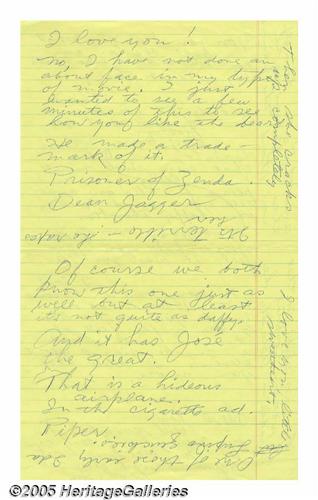 I love you!
No, I have not done an
about face in my type
of movie. I just
wanted to see a few
minutes of this to see
how young like the
He made a trade-
mark of it.
Prisoner of Zenda.
Dean Jagger
It's terrible -
her
Of course we both
know this one just as
well but at least
it's not quite as daffy.
And it has José
the great.
That is a hideous
airplane.
In the cigarette ad.
Piper
One of those early Ida
Lupino
Then she cracks
up completely
I love him better
©2005 HeritageGalleries